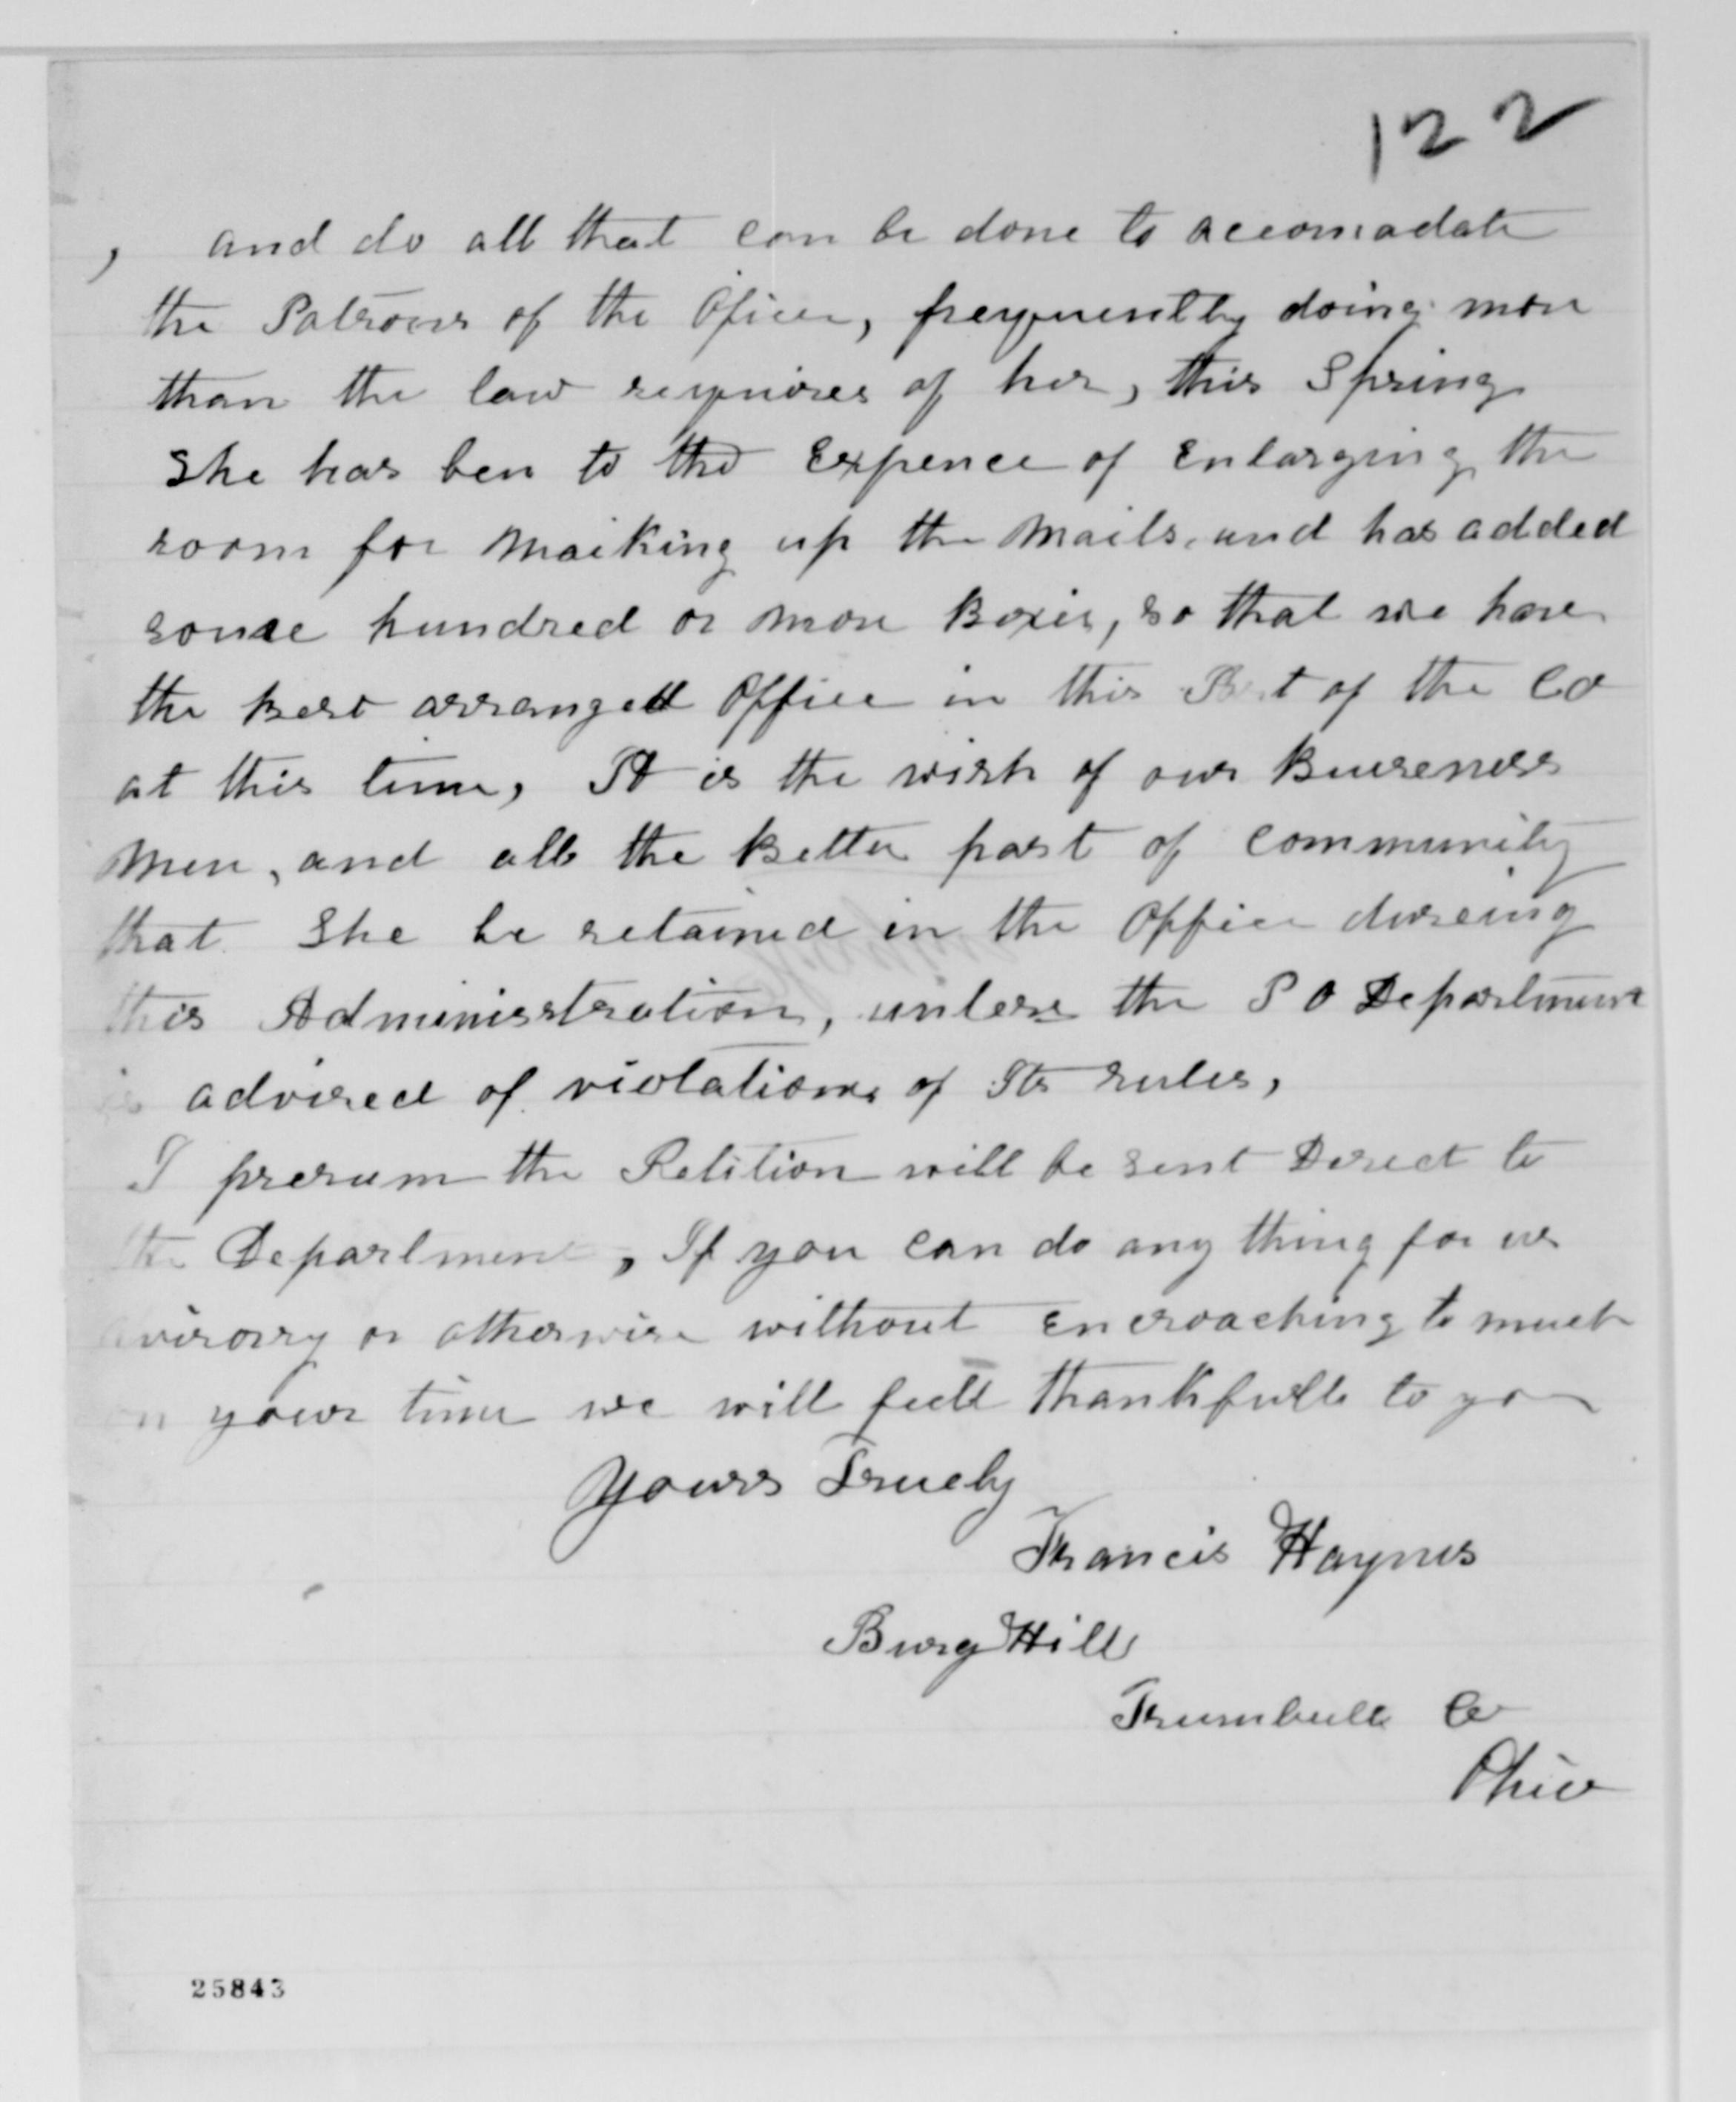 122
, and do all that can be done to accomadate
the Patrons of the Ofice, freyuently doing more
than the law reyuires of her, this Spring
She has ben to the Expence of Enlarging the
room for maiking up the mails, and has added
some hundred or more Boxes, so that we have
the best arranged Office in this of the Co
at this time, It is the wish of our Buiseness
men, and all the better part of community
that She be retained in the Office dureing
this Administration, unless the P O Department
is advised of violations of Its rules,
I presum the Petition will be sent Direct to
the Department, If you can do any thing for us
or otherwise without Encroaching to much
on your time we will feell thankfull to you
Yours Truely
Francis Haynes
Burg Hill
Trumbull Co
Ohio
25843